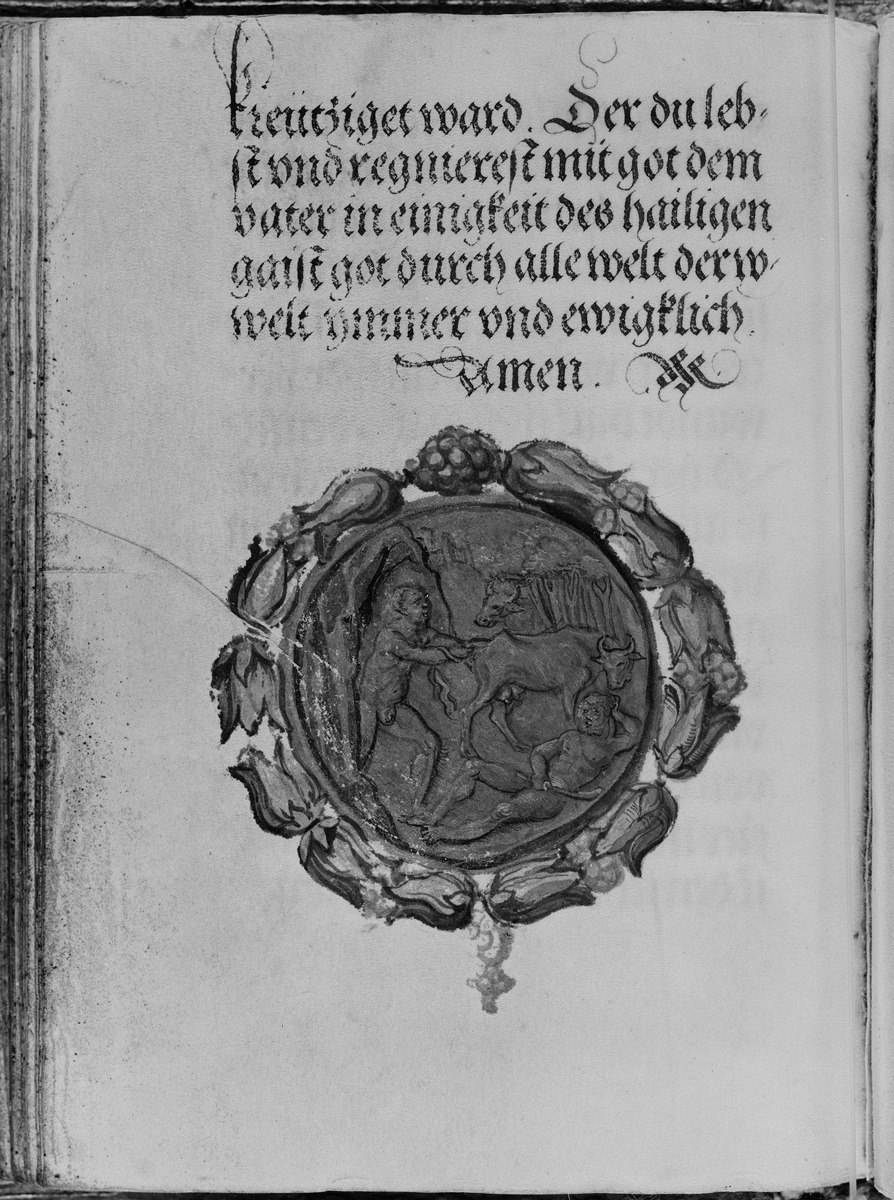 kreütziget ward. Der du leb-
st vnd regnierest mit got dem
vater in einigkeit des hailigen
gaist got durch alle welt der w-
welt ymmer vnd ewigklich.
Amen.